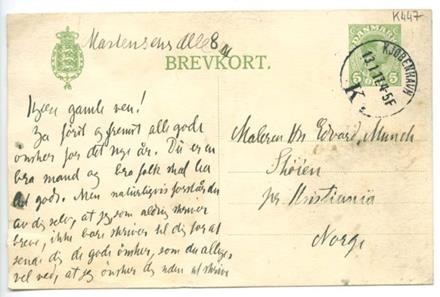 K447
Martensens Alle 8 IV
BREVKORT.
DANMARK
5 5
KJØBENHAVN
13.1.17 4-5F
K.
Kjære gamle ven!
Ta først og fremst alle gode
ønsker for det nye år. Du er en
bra mand og bra folk skal ha
det godt. Men naturligvis forstår du
av dig selv, at jeg som aldrig skriver
breve, ikke bare skriver til dig for at
sende dig de gode ønsker, som du alligevel
ved, at jeg ønsker dig uden at skrive
Maleren Hr Edvard Munch
Skøien
pr. Kristiania
Norge